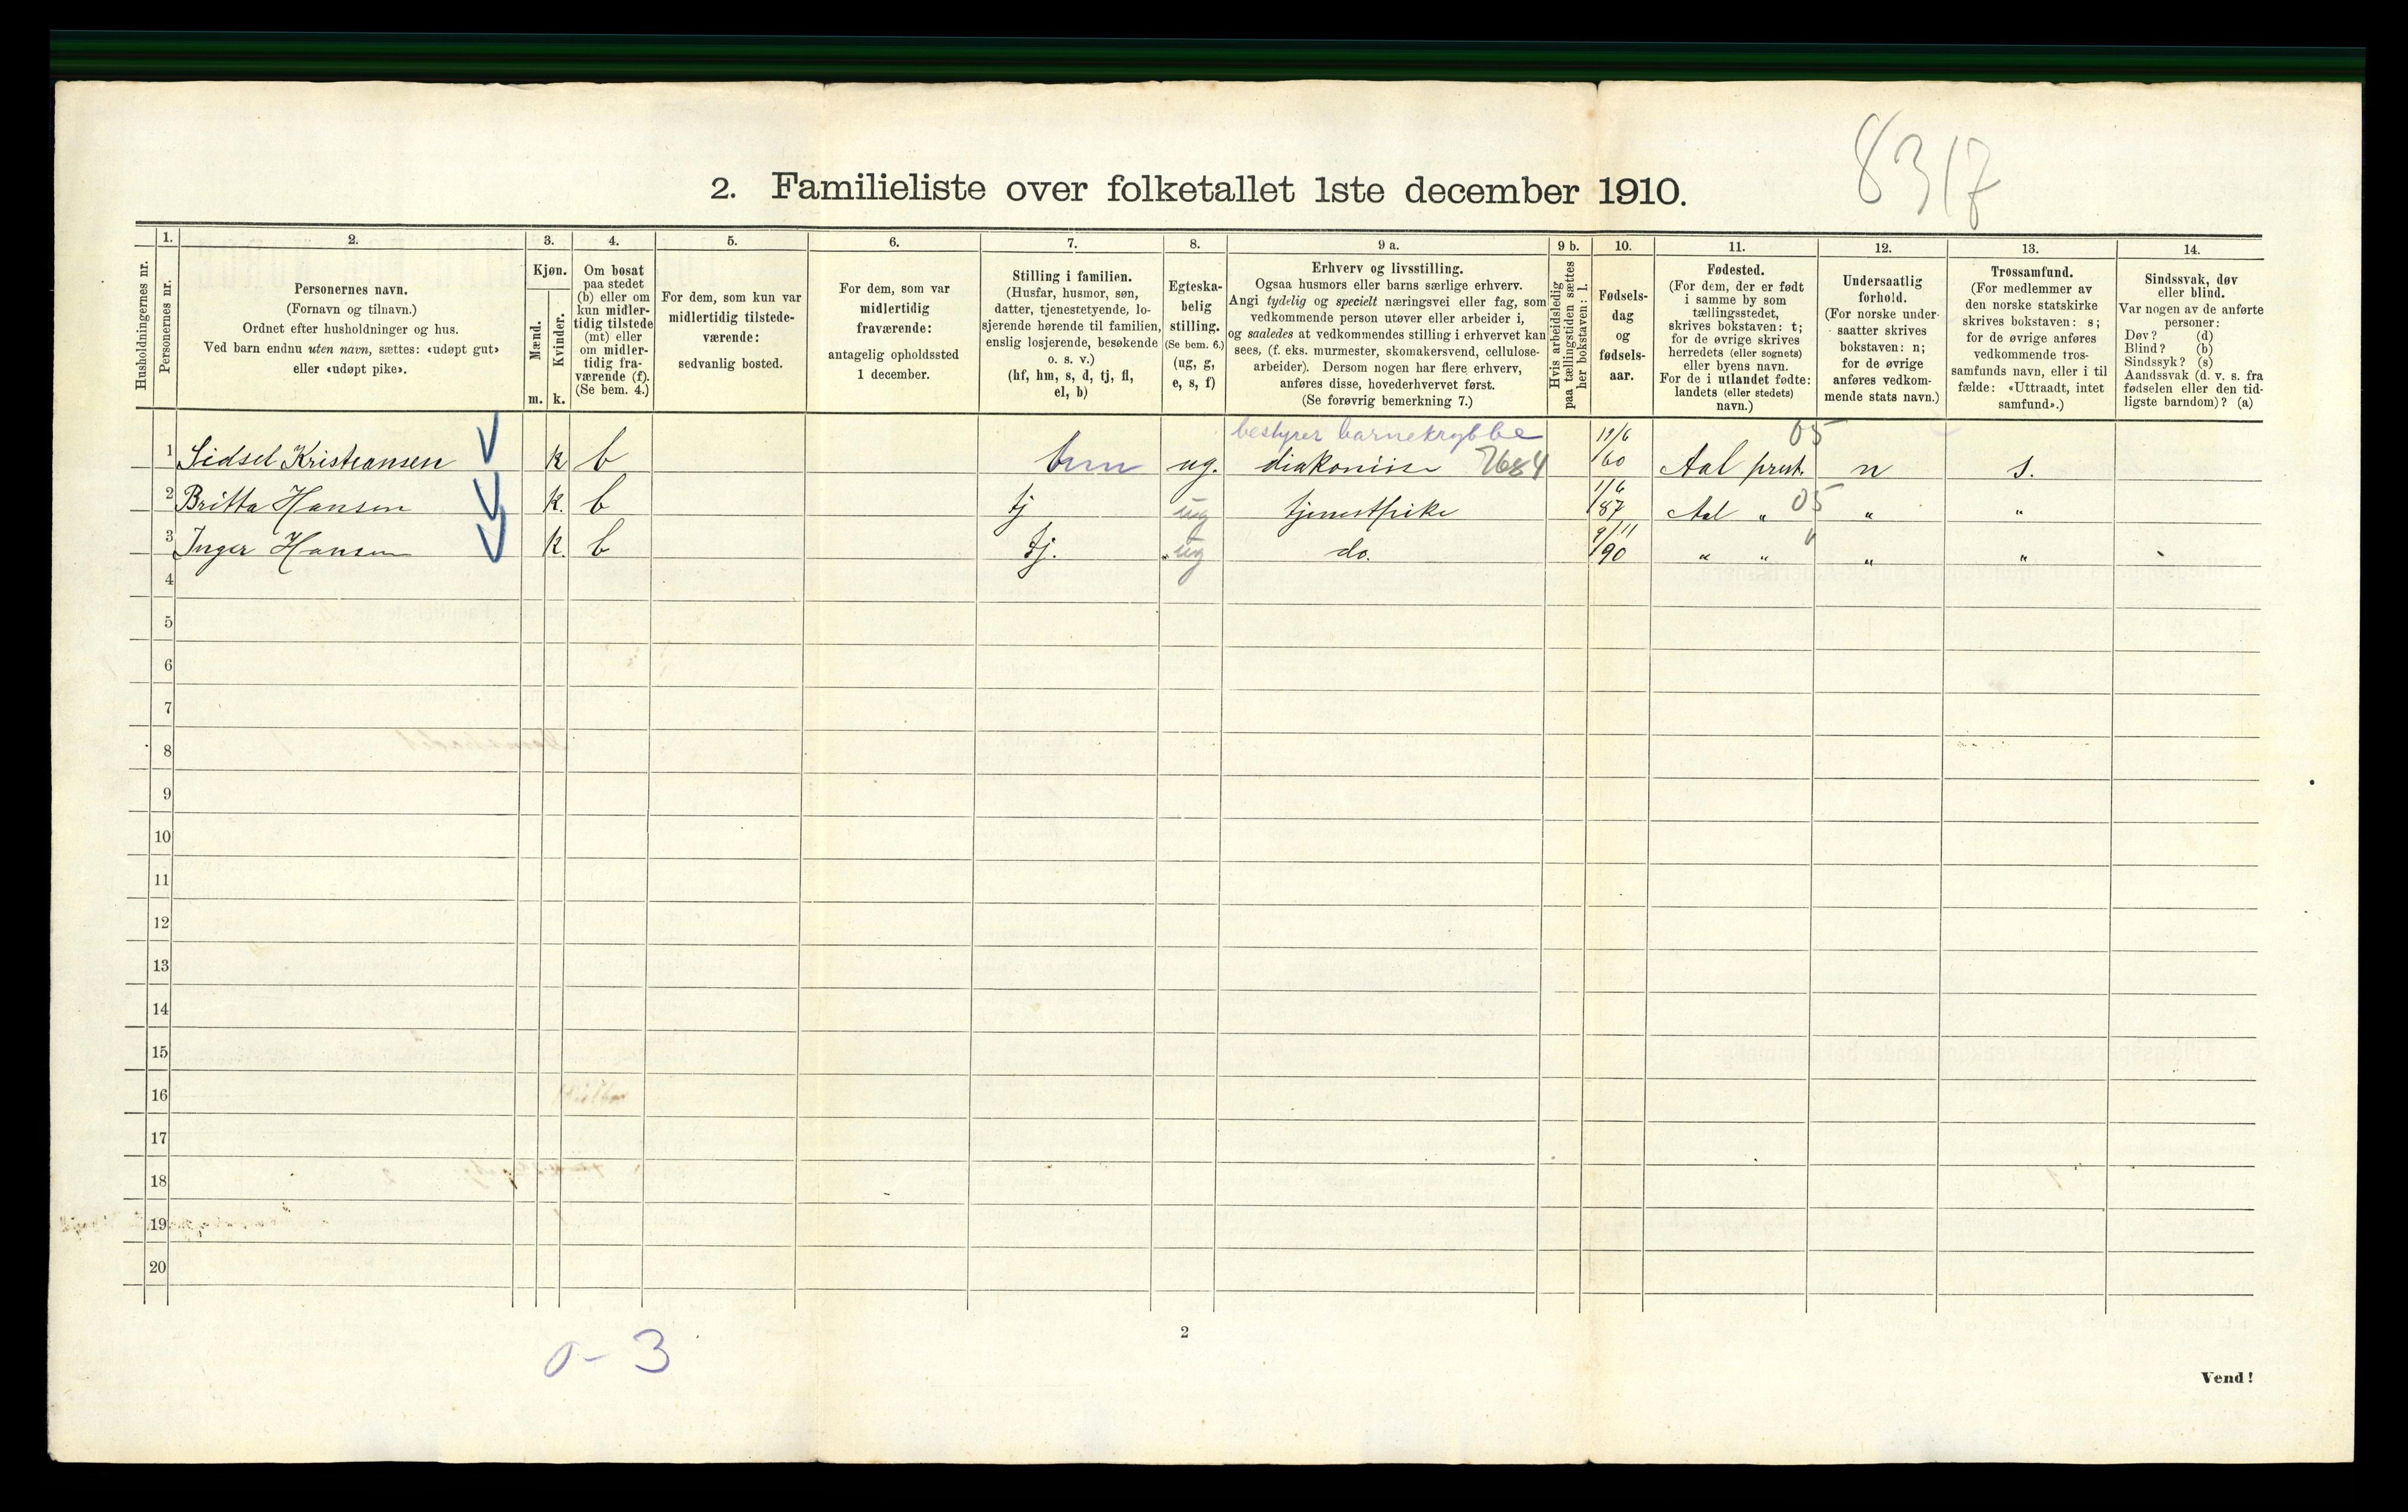 8317
2. Familieliste over folketallet 1ste december 1910.
1. 2. 3. 4. 5. 6. 7. 8. 9 a. 9 b. 10. 11. 12. 13. 14.
Husholdningernes nr.
Personernes nr.
Personernes navn.
(Fornavn og tilnavn.)
Ordnet efter husholdninger og hus.
Ved barn endnu uten navn, sættes: «udøpt gut»
eller «udøpt pike».
Kjøn.
Mænd.
Kvinder.
m. k.
Om bosat
paa stedet
(b) eller om
kun midler-
tidig tilstede
(mt) eller
om midler-
tidig fra-
værende (f).
(Se bem. 4.)
For dem, som kun var
midlertidig tilstede-
værende:
sedvanlig bosted.
For dem, som var
midlertidig
fraværende:
antagelig opholdssted
1 december.
Stilling i familien.
(Husfar, husmor, søn,
datter, tjenestetyende, lo-
sjerende hørende til familien,
enslig losjerende, besøkende
o. s. v.)
(hf, hm, s, d, tj, fl,
el, b)
Egteska-
belig
stilling.
(Se bem. 6.)
(ug, g,
e, s, f)
Erhverv og livsstilling.
Ogsaa husmors eller barns særlige erhverv.
Angi tydelig og specielt næringsvei eller fag, som
vedkommende person utøver eller arbeider i,
og saaledes at vedkommendes stilling i erhvervet kan
sees, (f. eks. murmester, skomakersvend, cellulose-
arbeider). Dersom nogen har flere erhverv,
anføres disse, hovederhvervet først.
(Se forøvrig bemerkning 7.)
Hvis arbeidsledig
paa tællingstiden sættes
her bokstaven: l.
Fødsels-
dag
og
fødsels-
aar.
Fødested.
(For dem, der er født
i samme by som
tællingsstedet,
skrives bokstaven: t;
for de øvrige skrives
herredets (eller sognets)
eller byens navn.
For de i utlandet fødte:
landets (eller stedets)
navn.)
Undersaatlig
forhold.
(For norske under-
saatter skrives
bokstaven: n;
for de øvrige
anføres vedkom-
mende stats navn.)
Trossamfund.
(For medlemmer av
den norske statskirke
skrives bokstaven: s;
for de øvrige anføres
vedkommende tros-
samfunds navn, eller i til
fælde: «Uttraadt, intet
samfund».)
Sindssvak, døv
eller blind.
Var nogen av de anførte
personer:
Døv? (d)
Blind? (b)
Sindssyk? (s)
Aandssvak (d. v. s. fra
fødselen eller den tid-
ligste barndom)? (a)
bestyrer barnekrybbe 05
1 Sidsel Kristiansen k b hm ug. diakonisse 7684 /60 Aal prest. n s.
2 Britta Hansen k. b tj ug tjenestpike 1/6 87 Aal " 05 " "
3 Inger Hansen k. b tj. ug do. 9/11 90 " " " "
4
5
6
7
8
9
10
11
12
13
14
15
16
17
18
19
20
0 - 3
2
Vend!